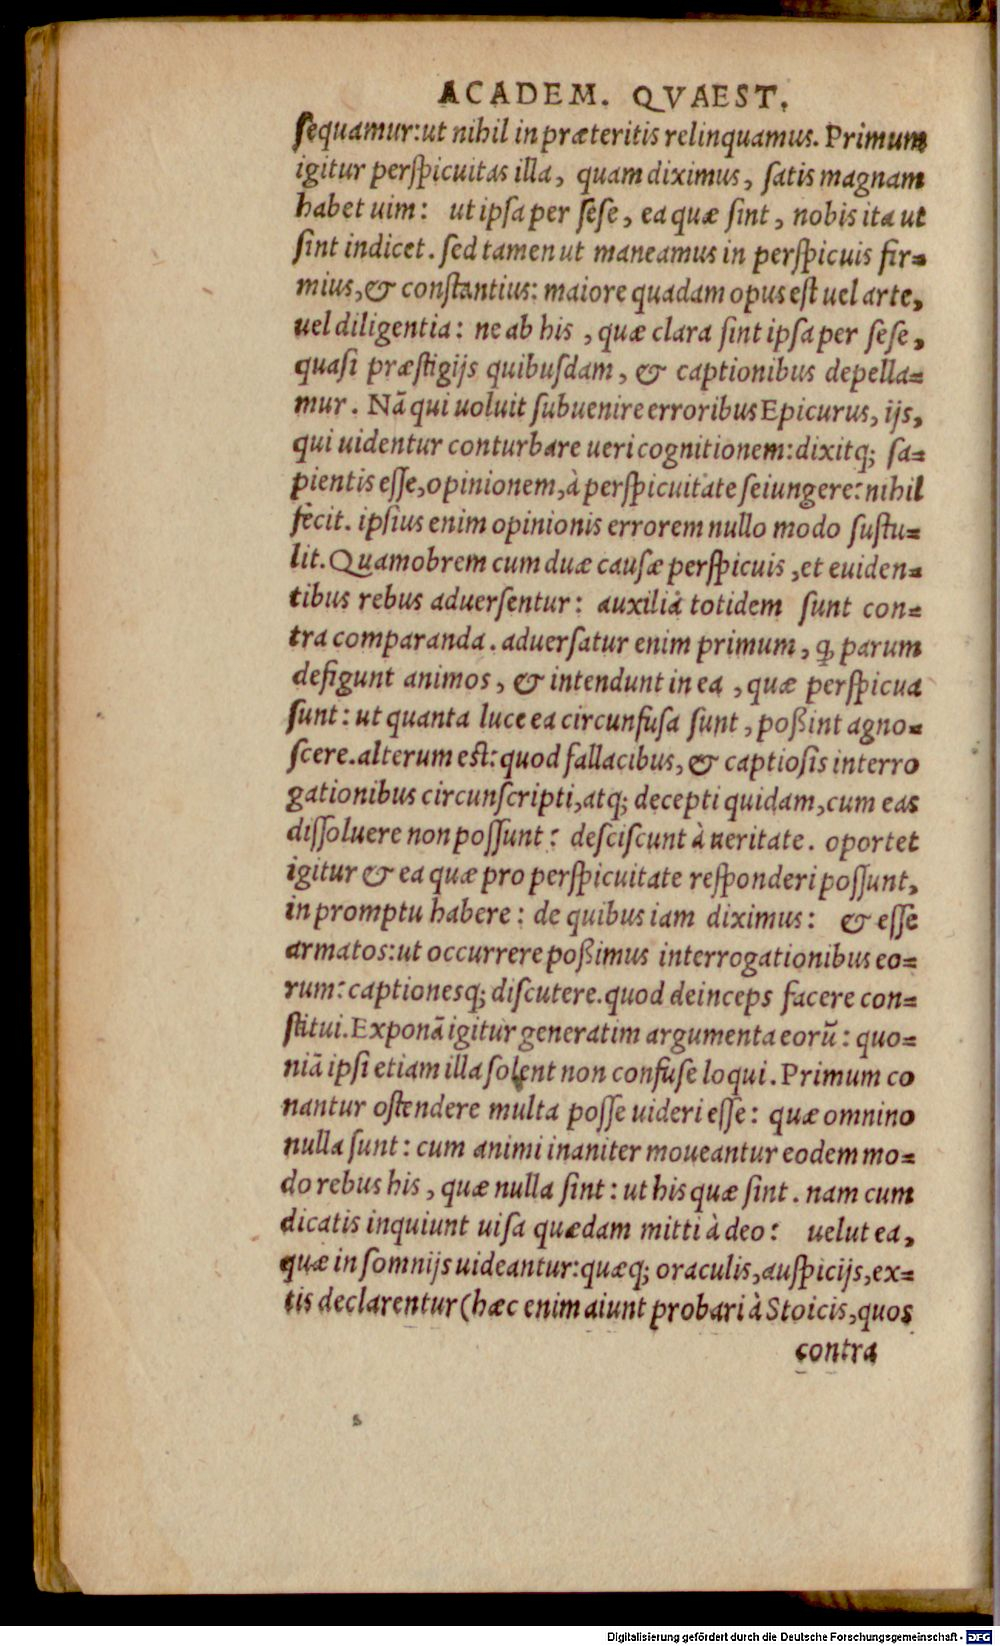 ACADEM. QVAEST.
sequamur: ut nihil in præteritis relinquamus. Primum
igitur perspicuitas illa, quam diximus, satis magnam
habet uim: ut ipsa per sese, ea quæ sint, nobis ita ut
sint indicet. sed tamen ut maneamus in perspicuis fir-
mius, & constantius: maiore quadam opus est uel arte,
uel diligentia: ne ab his, quæ clara sint ipsa per sese,
quasi præstigijs quibusdam, & captionibus depella-
mur. Nã qui uoluit subuenire erroribus Epicurus, ijs,
qui uidentur conturbare ueri cognitionem: dixitq; sa-
pientis esse, opinionem, à perspicuitate seiungere: nihil
fecit. ipsius enim opinionis errorem nullo modo sustu-
lit. Quamobrem cum duæ causæ perspicuis, et euiden-
tibus rebus aduersentur: auxilia totidem sunt con-
tra comparanda. aduersatur enim primum, ꝙ parum
defigunt animos, & intendunt in ea, quæ perspicua
sunt: ut quanta luce ea circunfusa sunt, poßint agno-
scere. alterum est: quod fallacibus, & captiosis interro
gationibus circunscripti, atq; decepti quidam, cum eas
dissoluere non possunt: desciscunt à ueritate. oportet
igitur & ea quæ pro perspicuitate responderi possunt,
in promptu habere: de quibus iam diximus: & esse
armatos: ut occurrere poßimus interrogationibus eo-
rum: captionesq; discutere. quod deinceps facere con-
stitui. Exponã igitur generatim argumenta eorũ: quo-
niã ipsi etiam illa solent non confuse loqui. Primum co
nantur ostendere multa posse uideri esse: quæ omnino
nulla sunt: cum animi inaniter moueantur eodem mo-
do rebus his, quæ nulla sint: ut his quæ sint. nam cum
dicatis inquiunt uisa quædam mitti à deo: uelut ea,
quæ in somnijs uideantur: quæq; oraculis, auspicijs, ex-
tis declarentur (hæc enim aiunt probari à Stoicis, quos
contra
Digitalisierung gefördert durch die Deutsche Forschungsgemeinschaft - DFG